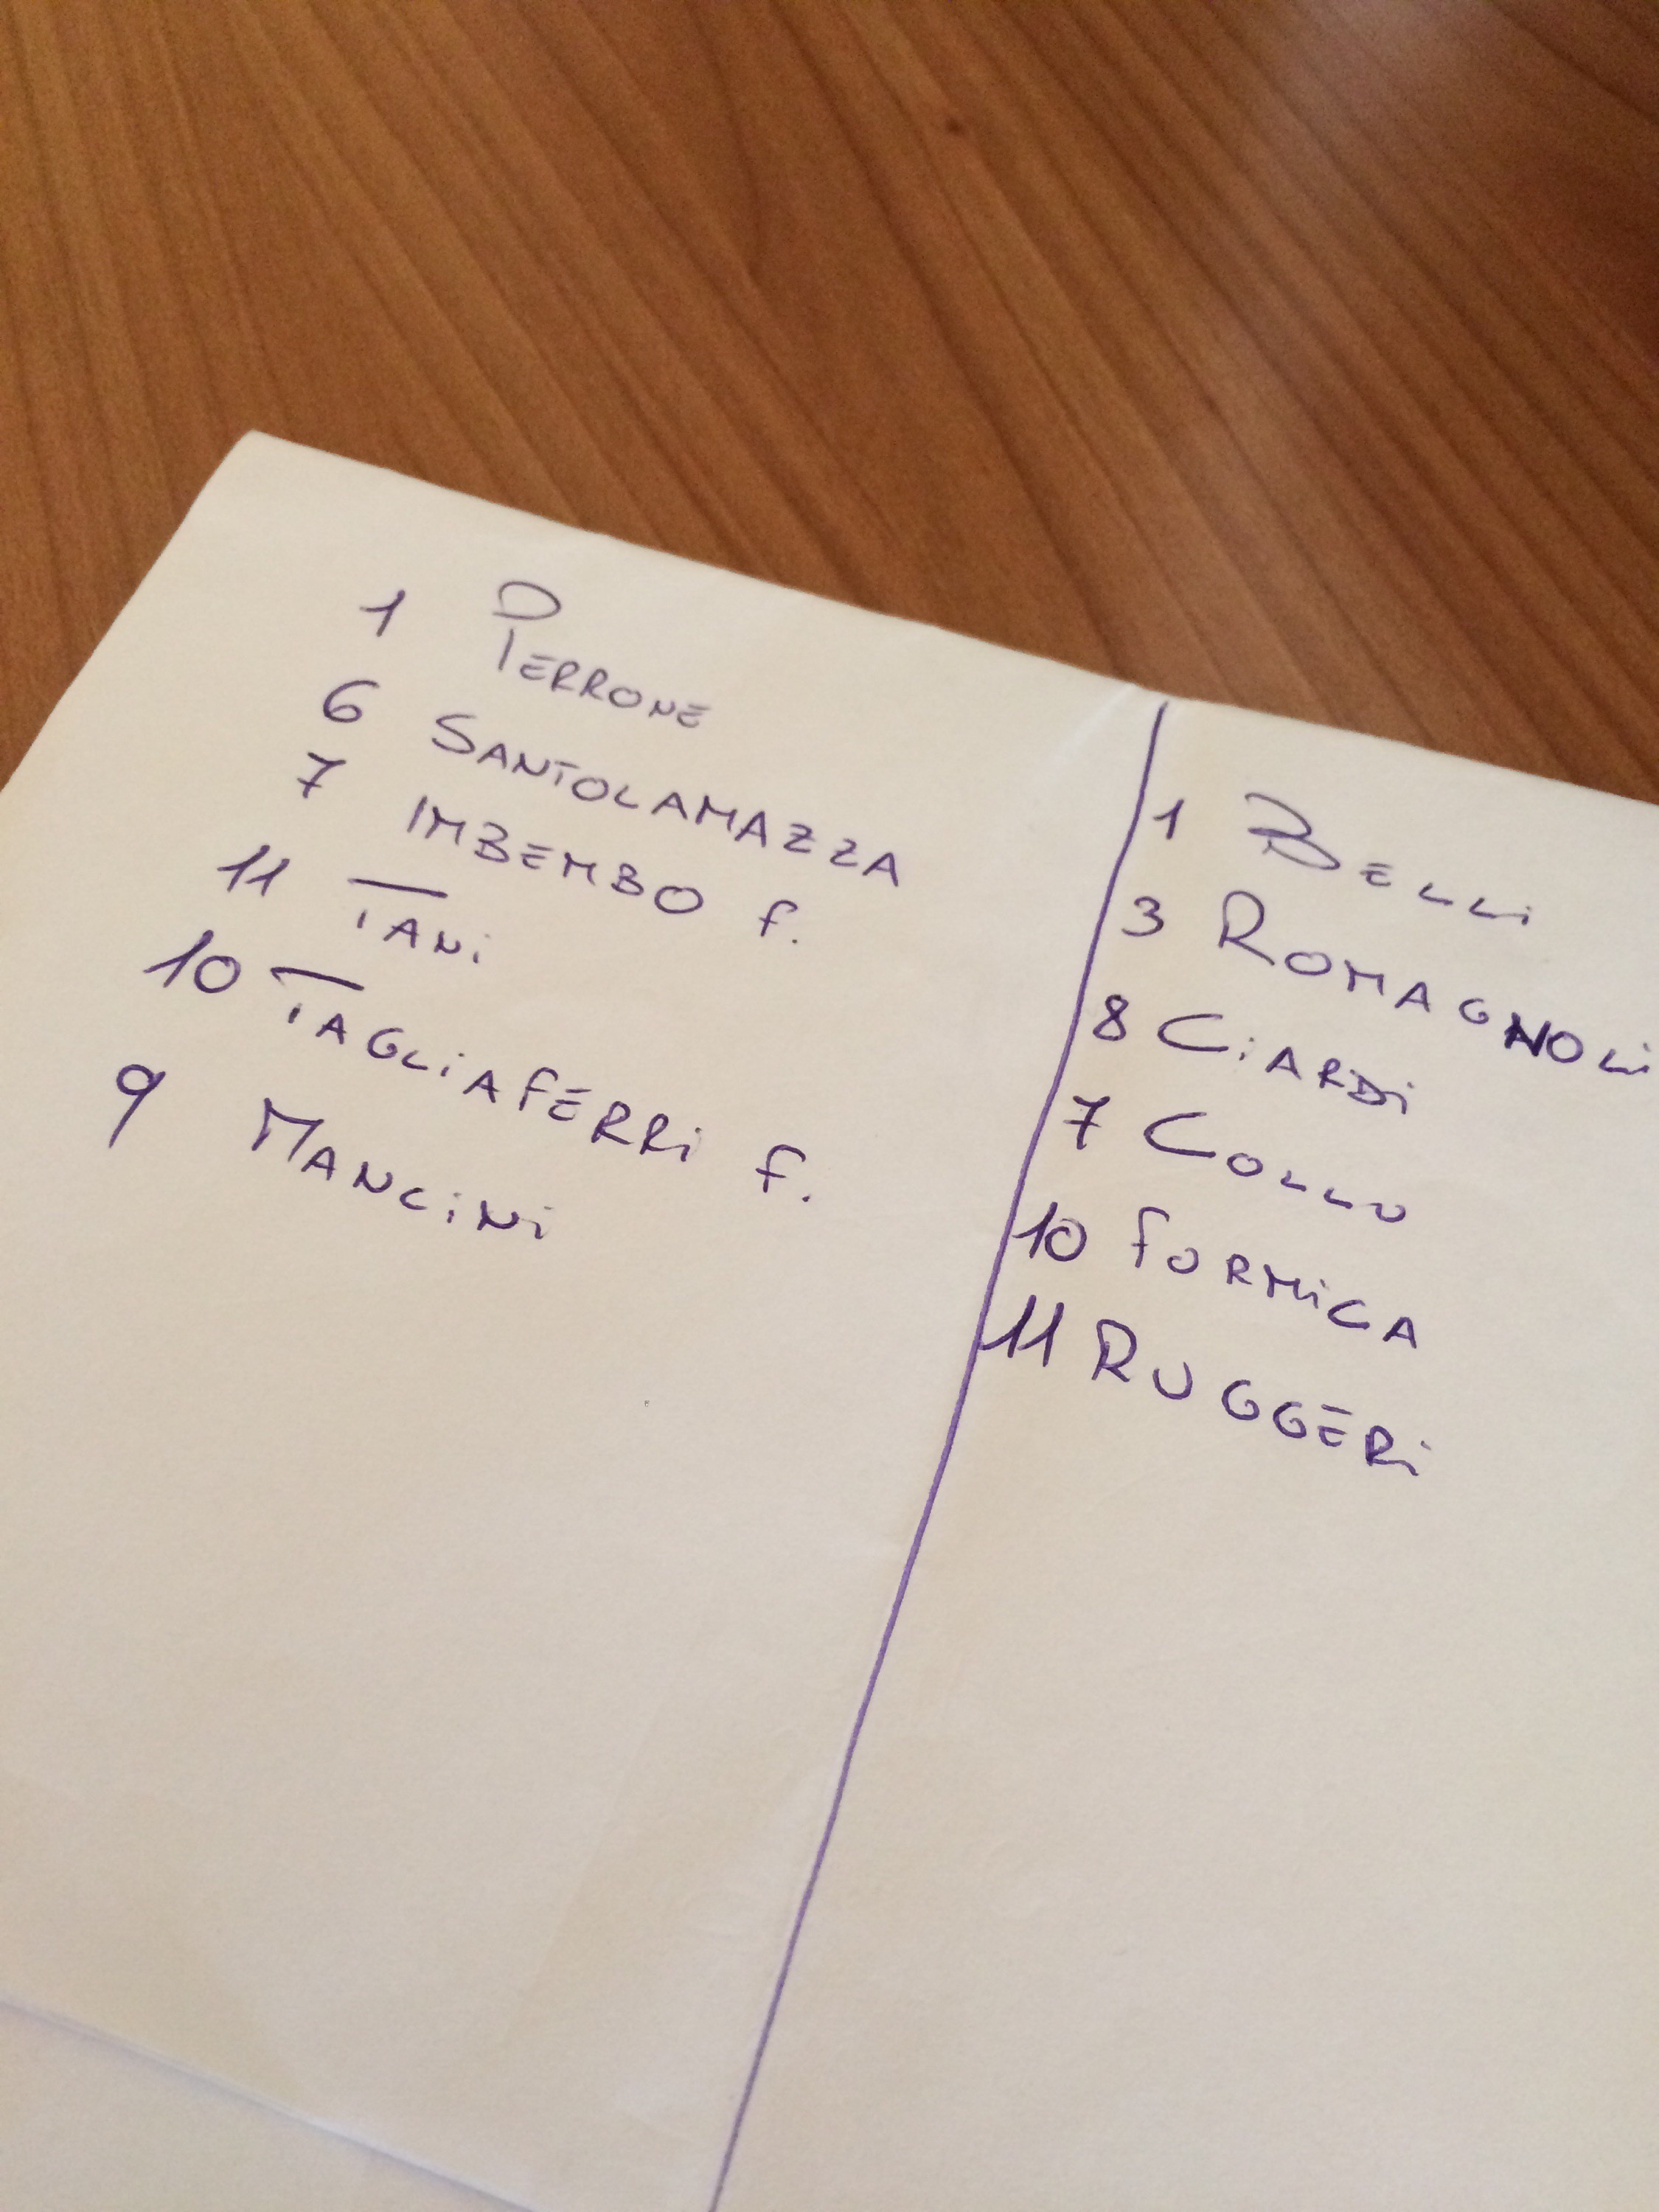 1 PERRONE
6 SANTOLAMAZZA
7 IMBEMBO F.
11 TANi
10 TAGLiAFERRi F.
9 MANCiNi
1 BELLi
3 ROMAGNOLi
8 CiARDi
7 COLLU
10 FORMiCA
11 RUGGERi